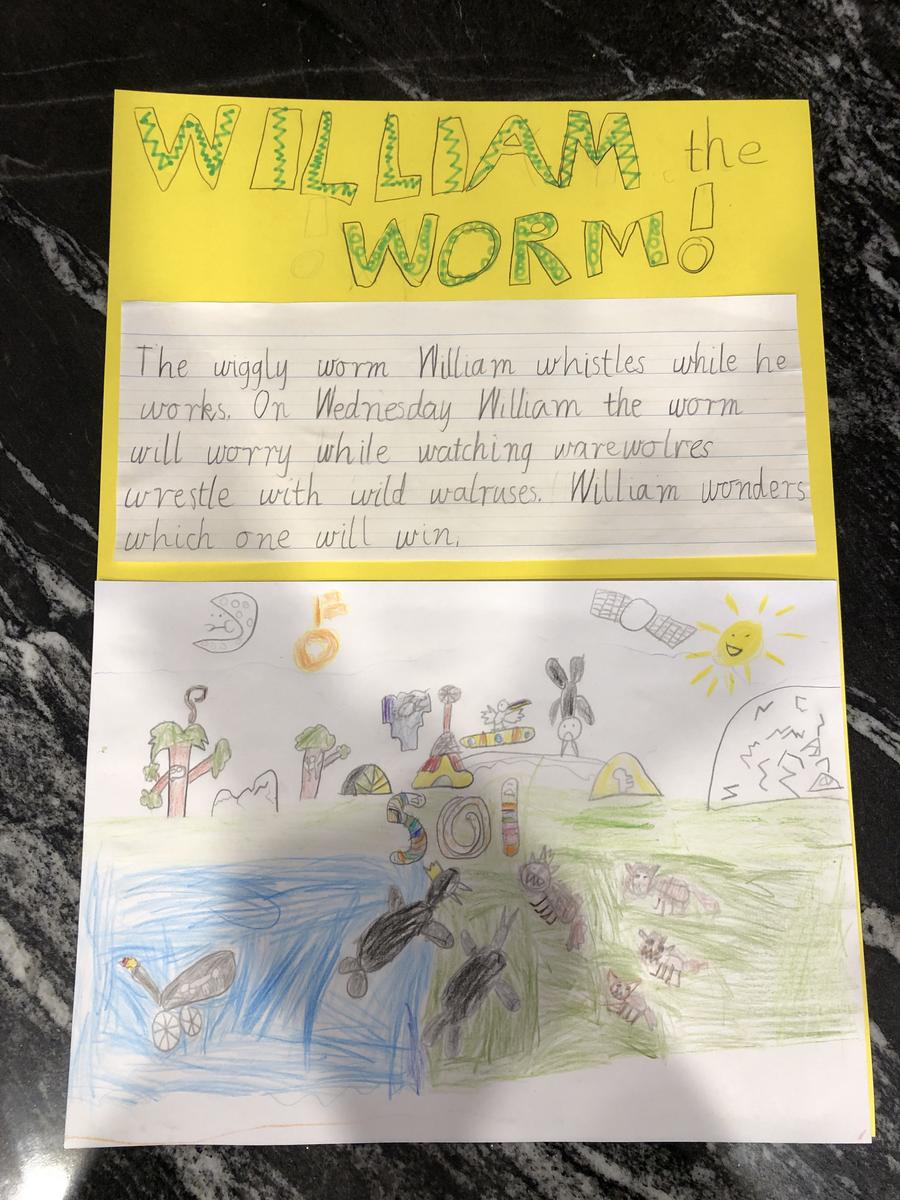 WILLIAM the
WORM!
The wiggly worm William whistles while he
works. On Wednesday William the worm
will worry while watching warewolves
wrestle with wild walruses. William wonders
which one will win.